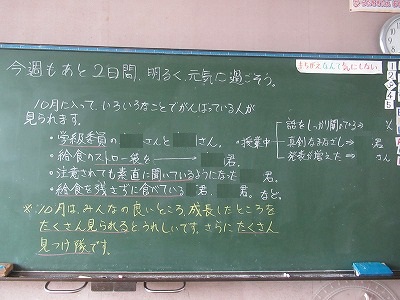 まちがえなんて気にしない
今週もあと2日間、明るく、元気に過ごそう。
10月に入って、いろいろなことでがんばっている人が
見られます。
・学級委員の さんと さん。
・給食のストロー袋を 君。
・注意されても素直に聞いているようになった 君。
・給食を残さずに食べている 君、 君。など。
・授業中
話をしっかり聞けている⇒
真剣なまなざし⇒ 君
発表が増えた⇒ さん
※10月は、みんなの良いところ、成長したところを
たくさん見られるとうれしいです。さらにたくさん
見つけ隊です。